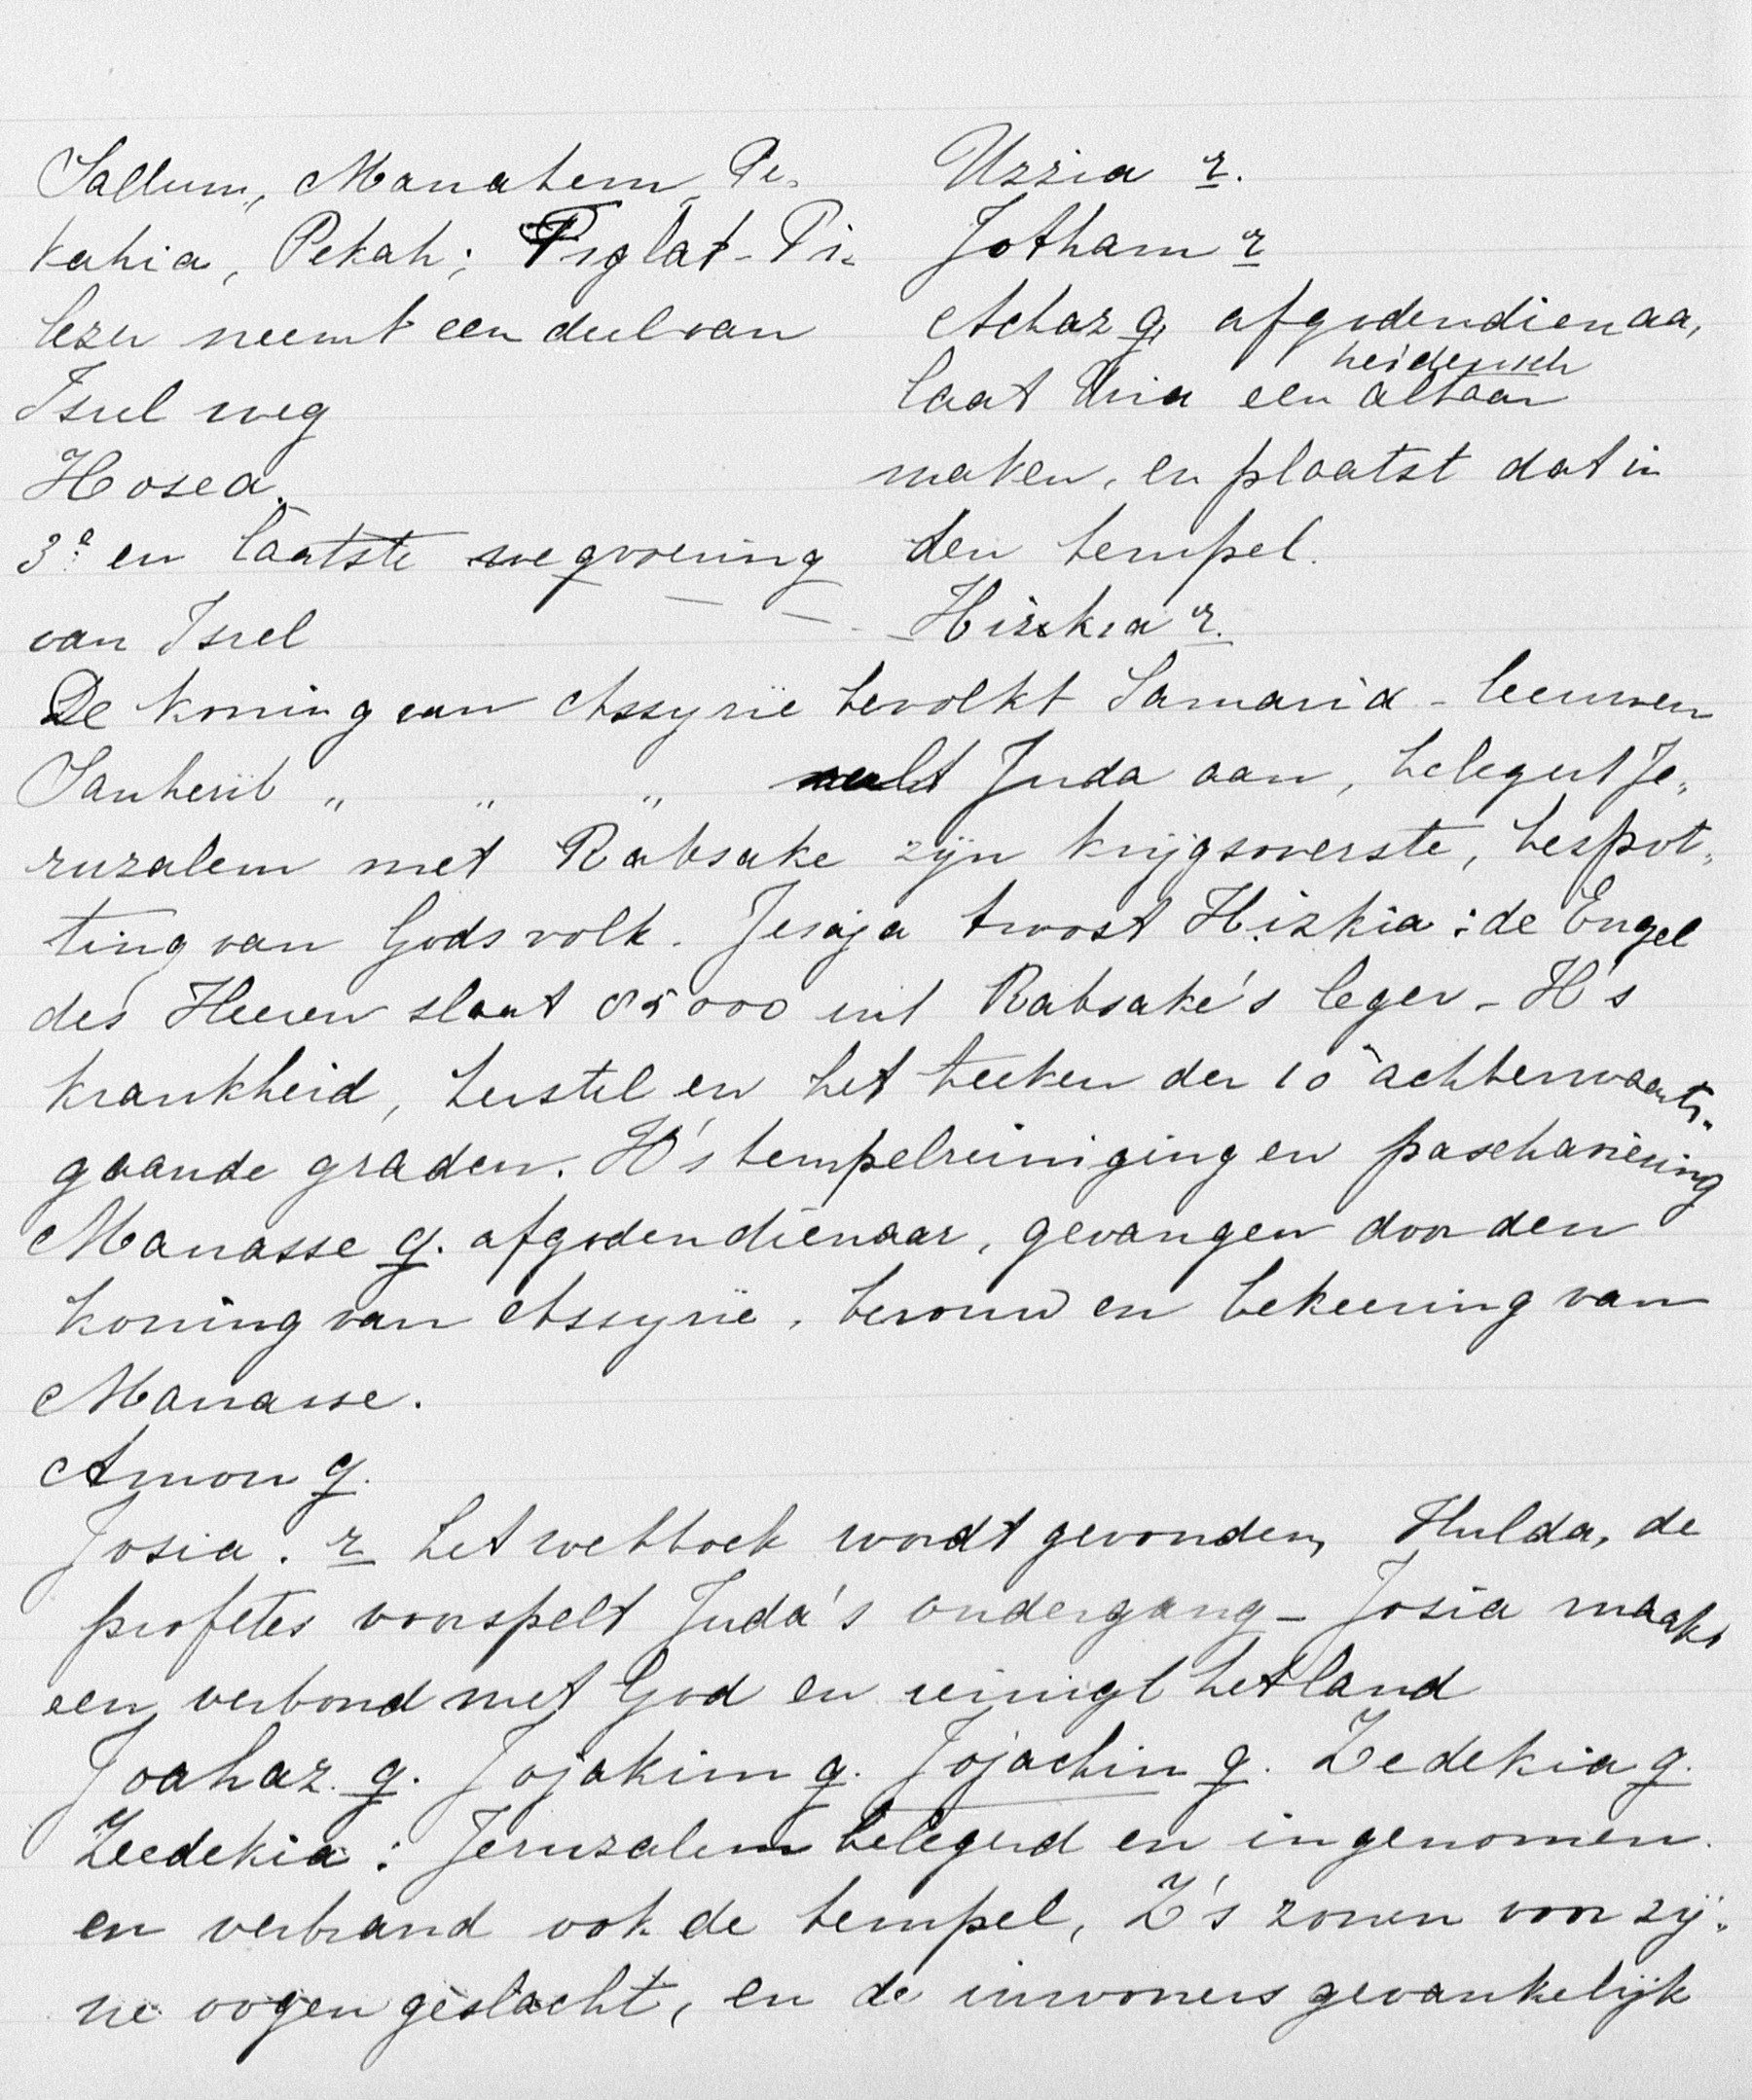 Sallum, Manahem, Pe-
kahia, Pekah; Tiglat-Pi-
lezer neemt een deel van
Isrel weg
Hosea.
3e en laatste wegvoering
van Isrel
Uzzia r.
Jotham r
Achaz g, afgodendienaa,
laat Uria een heidensch altaar
maken, en plaatst dat in
den tempel.
Hiskia r.
De koning van Assyrië bevolkt Samaria - leeuwen
Sanherib " " " valt Juda aan, belegert Je-
ruzalem met Rabsake zijn krijgsoverste, bespot-
ting van Gods volk. Jesaja troost Hizkia: de Engel
des Heeren slaat 85000 uit Rabsake's leger - H's
krankheid, herstel en het teeken der 10 achterwaarts-
gaande graden. H's tempelreiniging en paschaviering
Manasse g. afgodendienaar, gevangen door den
koning van Assyrië, berouw en bekeering van
Manasse.
Amon g.
Josia. r het wetboek wordt gevonden, Hulda, de
profetes voorspelt Juda's ondergang - Josia maakt
een verbond met God en reinigt het land
Joahaz. g. Jojakim g. Jojachin g. Zedekia g.
Zedekia: Jeruzalem belegerd en ingenomen.
en verbrand ook de tempel, Z's zonen voor zij-
ne oogen geslacht, en de inwoners gevankelijk